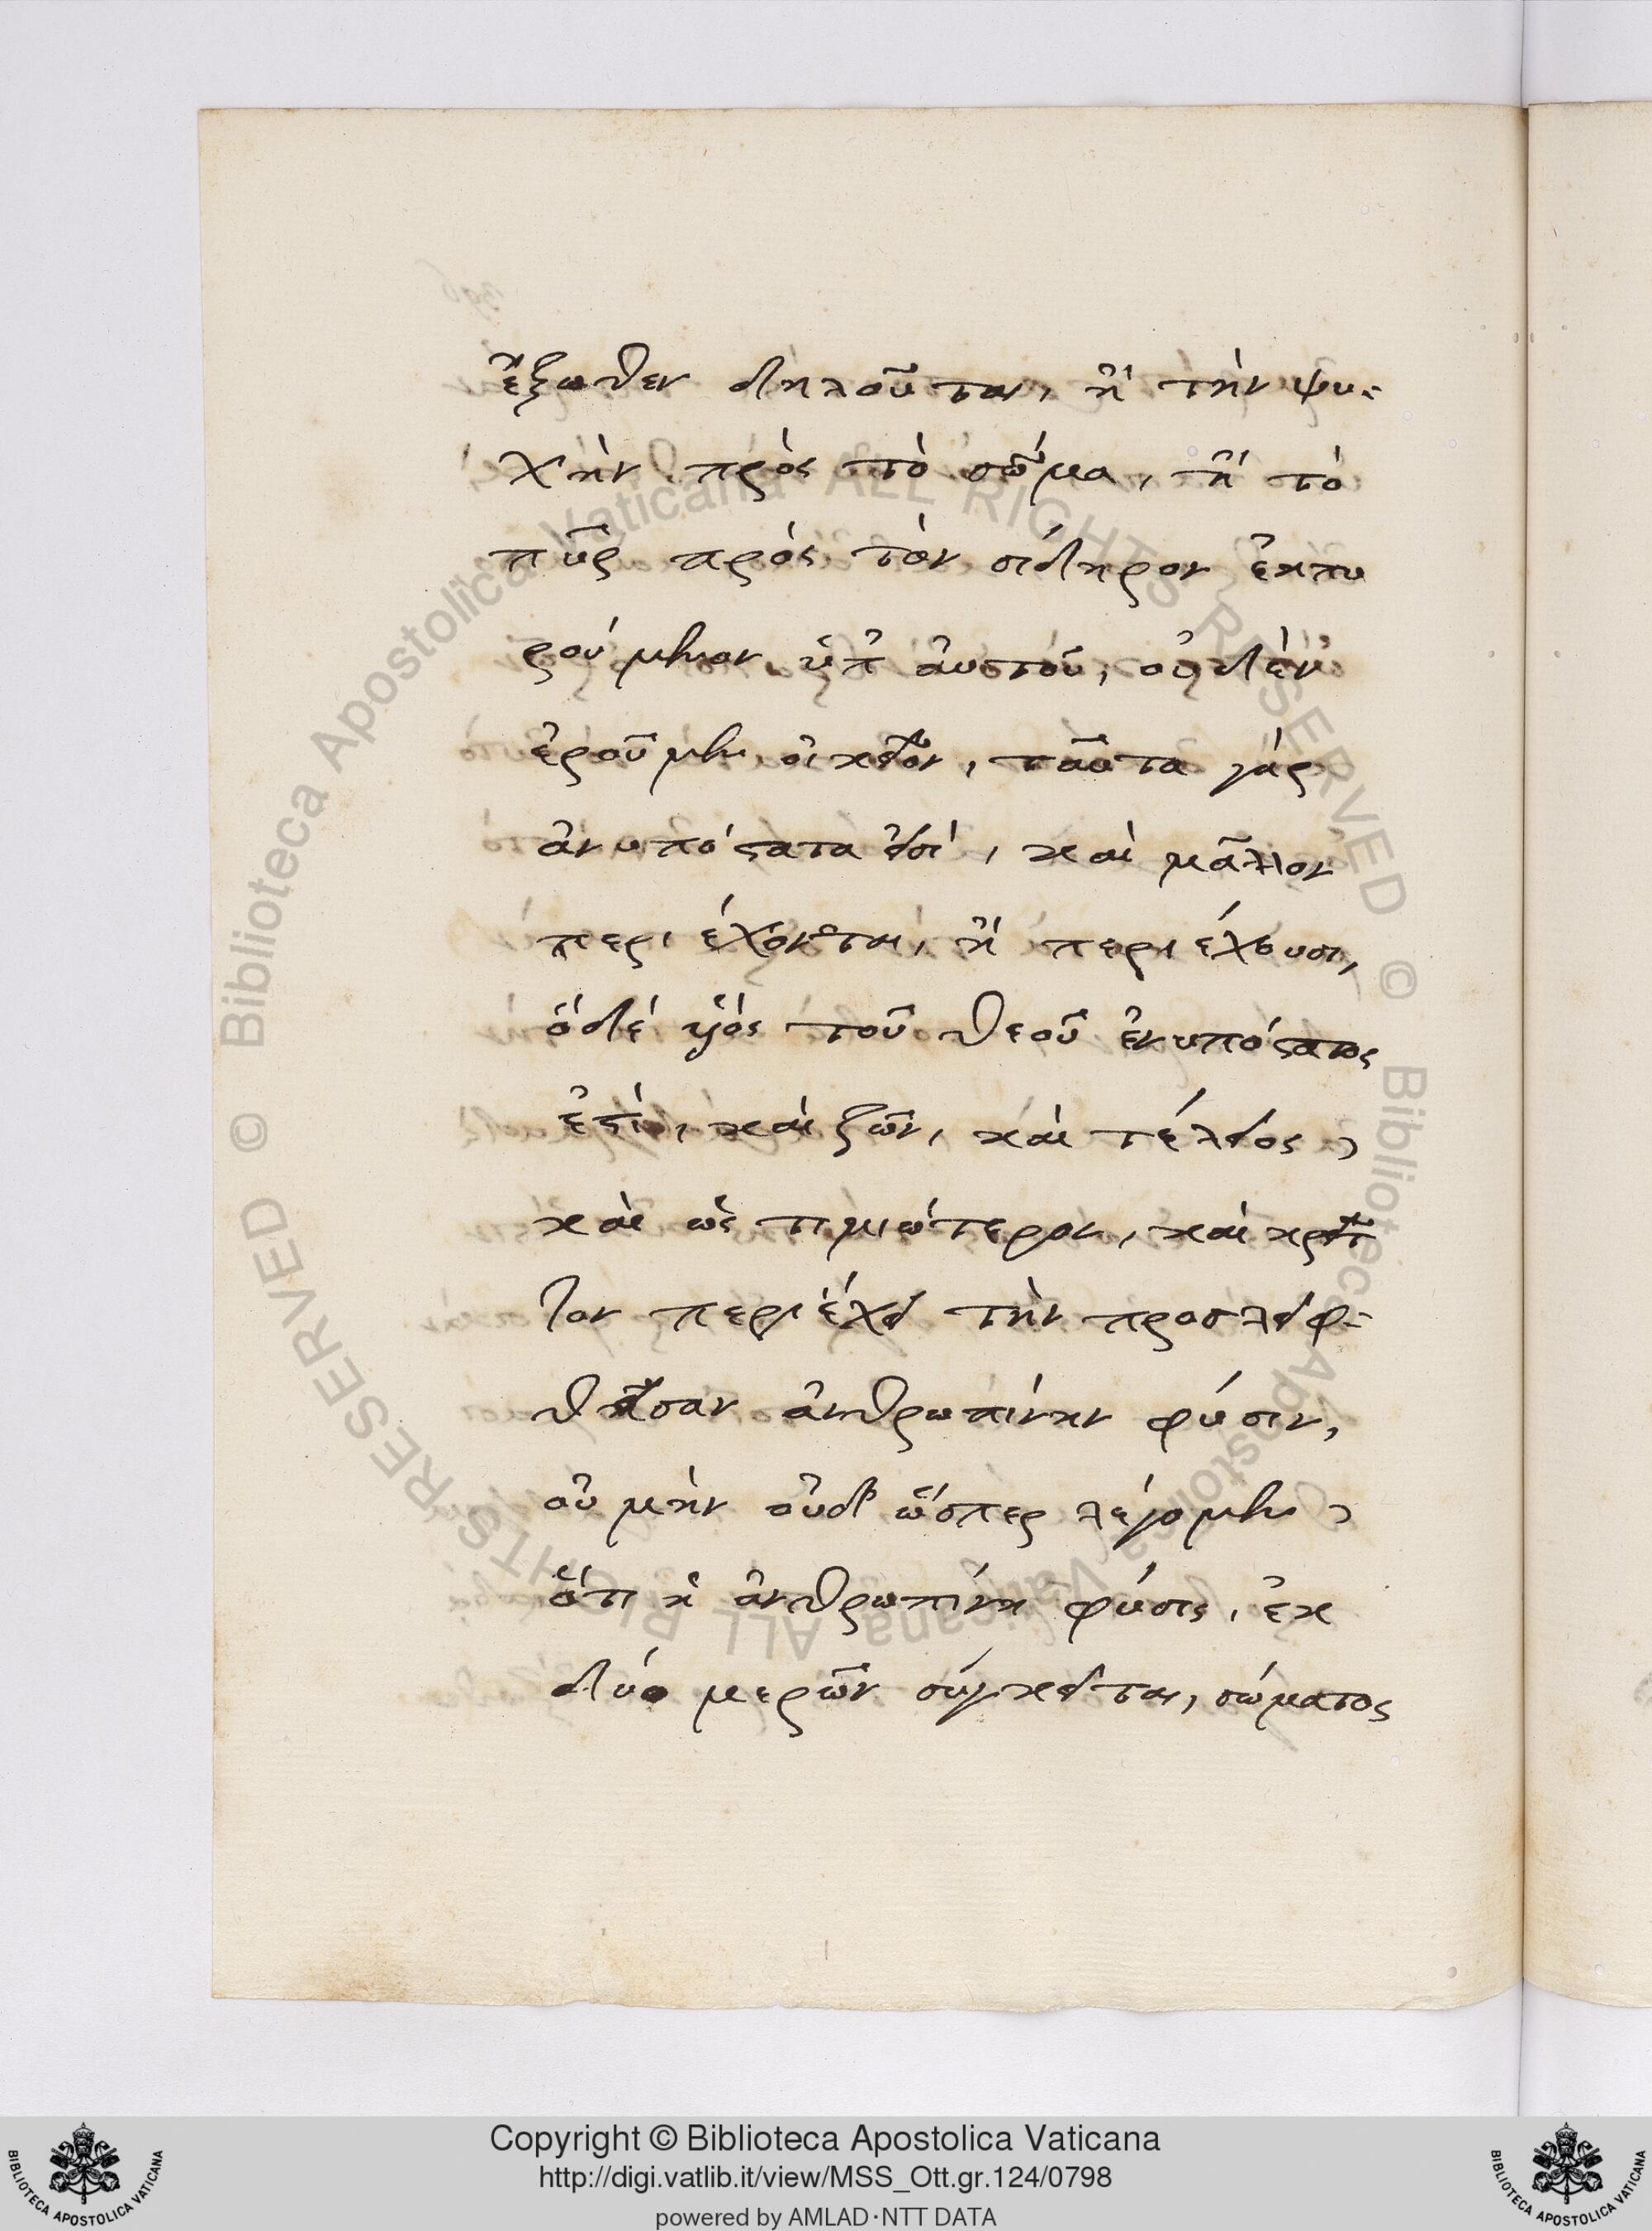 ἔξωθεν δηλοῦται, ἢ τὴν ψυ-
χὴν πρὸς τὸ σῶμα, ἢ τὸ
πῦρ πρὸς τὸν σίδηρον ἐκπυ
ρούμενον ὑπ' ἀυτοῦ, οὐδὲν
ἐροῦμεν οἰκεῖον, ταῦτα γάρ
ἀνυπόστατα εἰσί, καὶ μᾶλλον
περιέχονται, ἢ περιέχουσι,
ὁ δέ υἱὸς τοῦ θεοῦ ἐνυπόστατος
ἐστί, καὶ ζῶν, καὶ τέλειος,
καὶ ὡς τιμιώτερον, καὶ κρεῖτ
τον περιέχει τὴν προσλειφ-
θεῖσαν ἀνθρωπίνην φύσιν,
οὐ μὴν οὐδ' ὥσπερ λέγομεν,
ὅτι ἡ ἀνθρωπίνη φύσις, ἐκ
δύο μερῶν σύγκειται, σώματος
Copyright © Biblioteca Apostolica Vaticana
http://digi.vatlib.it/view/MSS_Ott.gr.124/0798
powered by AMLAD·NTT DATA
BIBLIOTECA APOSTOLICA VATICANA
BIBLIOTECA APOSTOLICA VATICANA
© Biblioteca Apostolica Vaticana ALL RIGHTS RESERVED
© Biblioteca Apostolica Vaticana ALL RIGHTS RESERVED